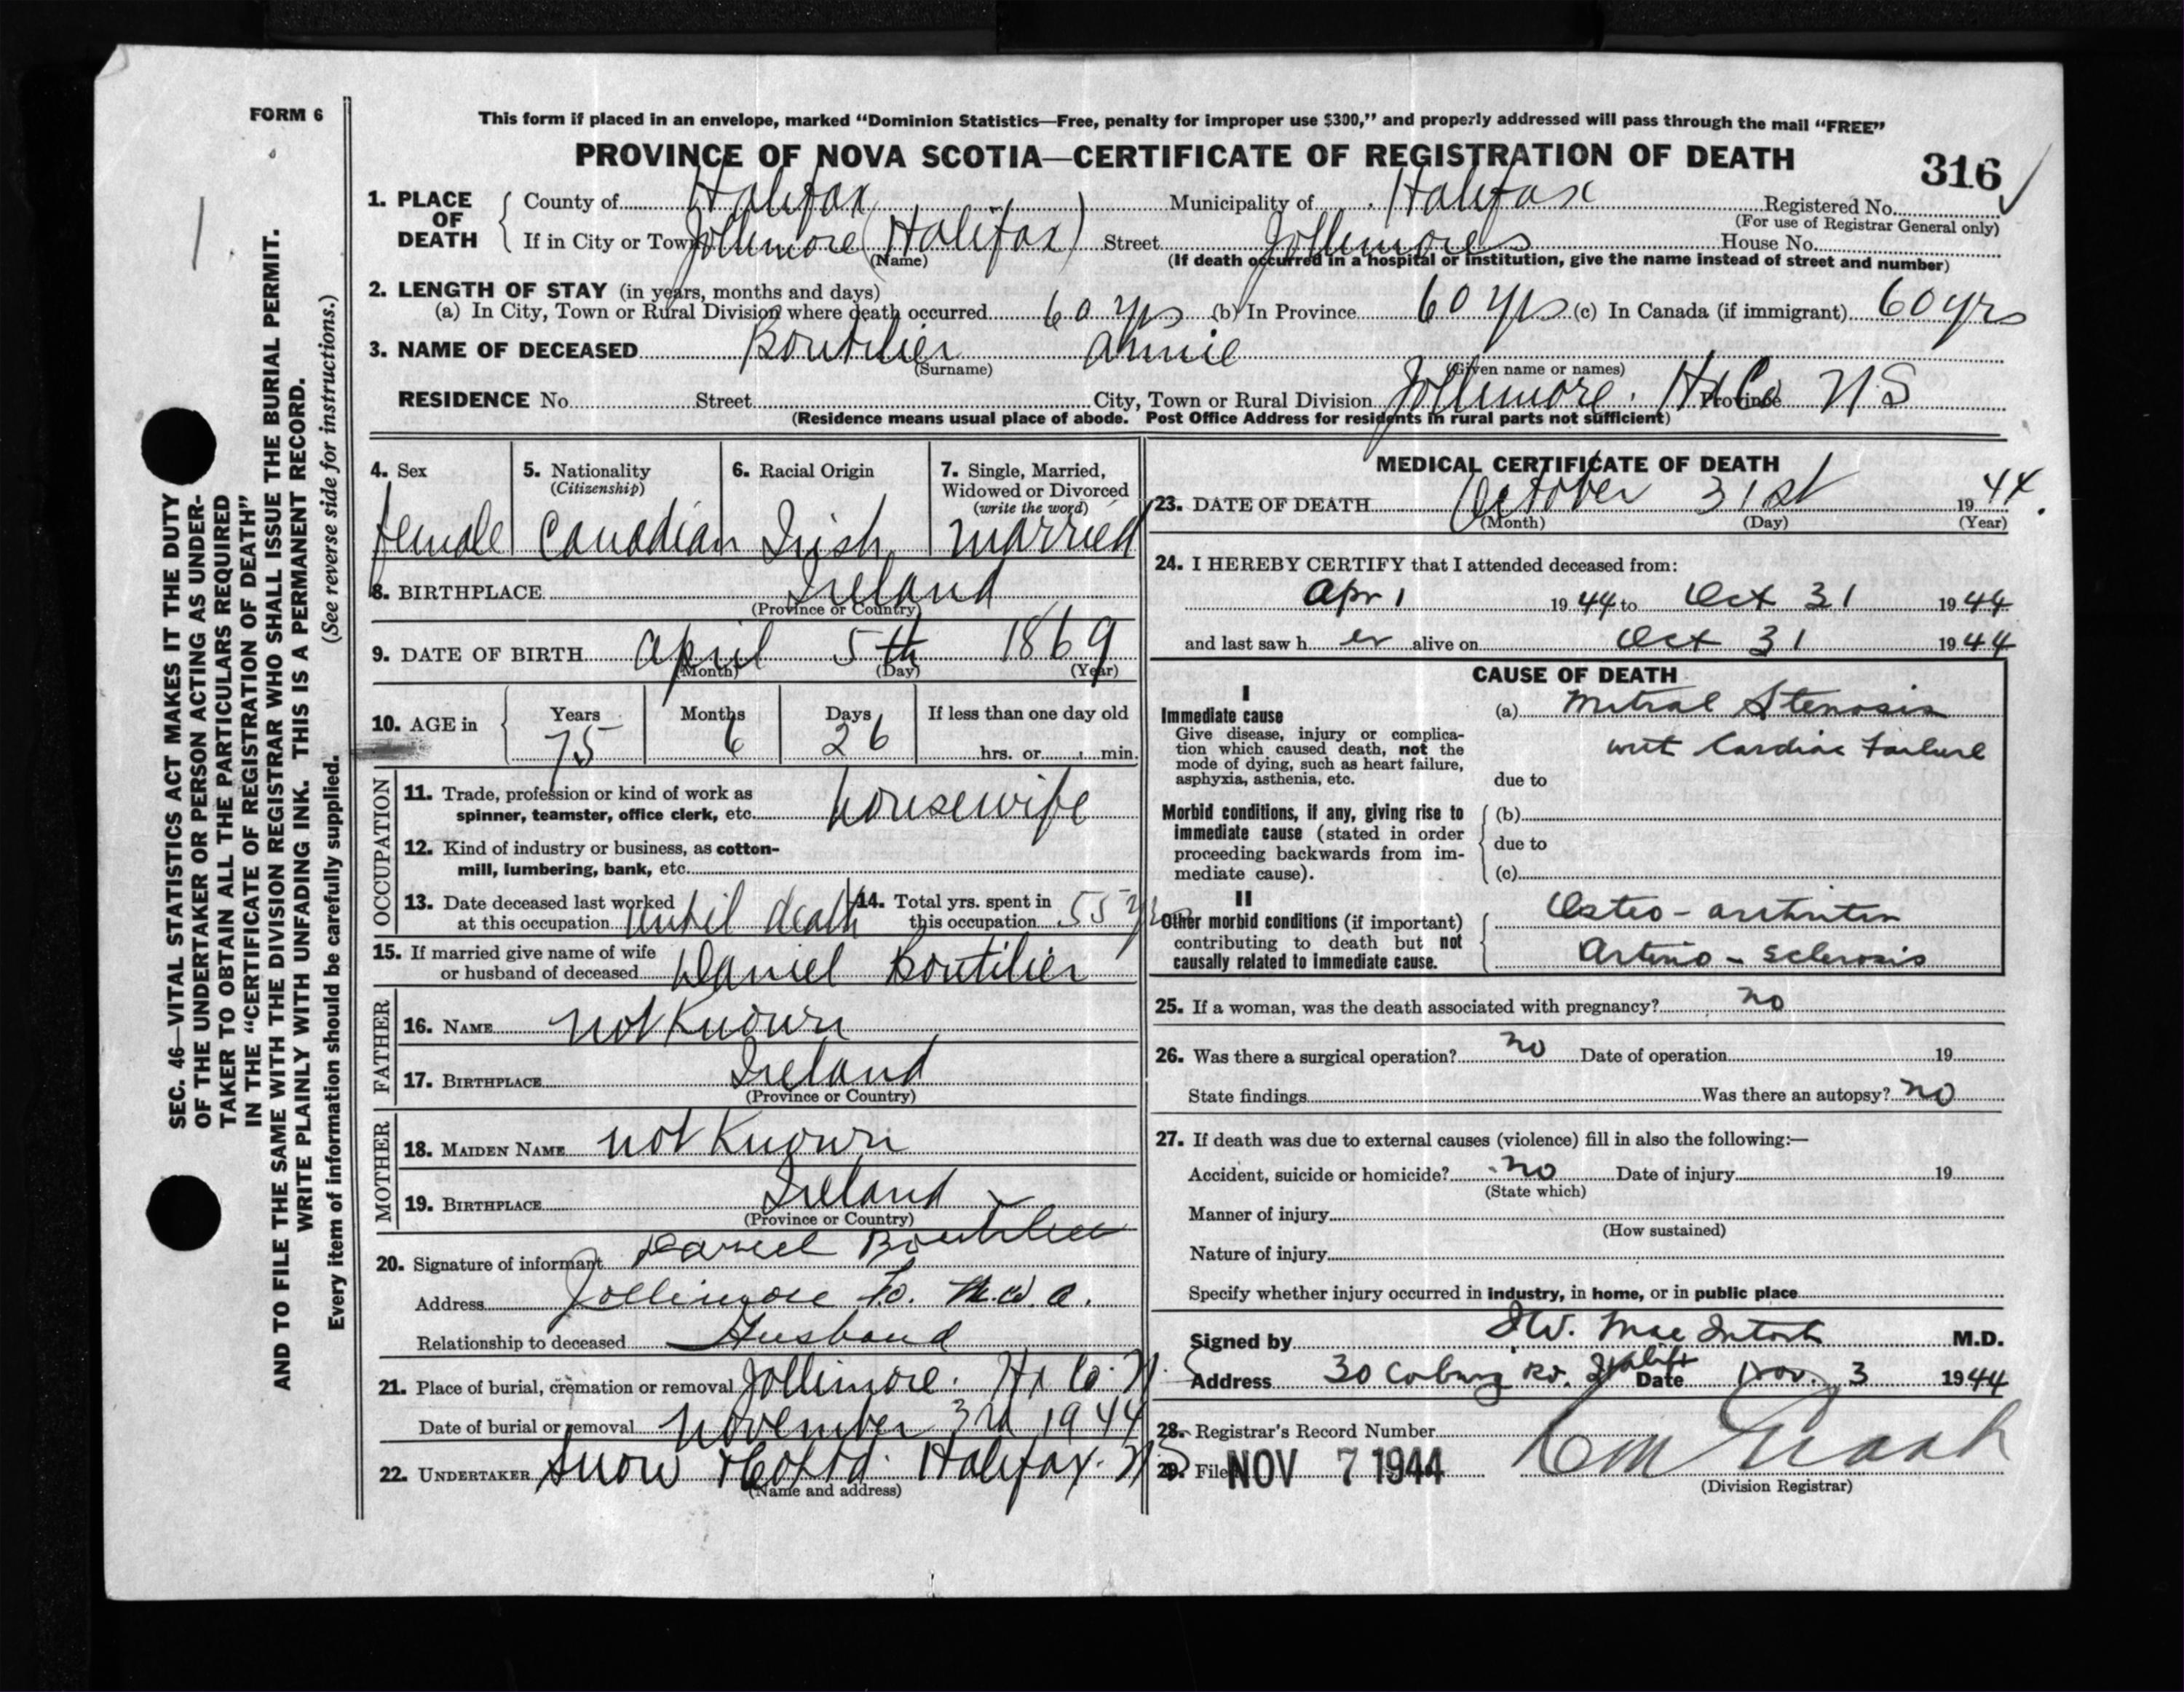 FORM 6
This form if placed in an envelope, marked “Dominion Statistics—Free, penalty for improper use $300,” and properly addressed will pass through the mail “FREE”
PROVINCE OF NOVA SCOTIA—CERTIFICATE OF REGISTRATION OF DEATH
316
1. PLACE OF DEATH
County of Halifax Municipality of Halifax Registered No.
(For use of Registrar General only)
If in City or Town Jollimore (Halifax) Street Jollimores House No.
(Name) (If death occurred in a hospital or institution, give the name instead of street and number)
2. LENGTH OF STAY (in years, months and days)
(a) In City, Town or Rural Division where death occurred 60 yrs (b) In Province 60 yrs (c) In Canada (if immigrant) 60 yrs
3. NAME OF DECEASED Boutilier Annie
(Surname) (Given name or names)
RESIDENCE No. Street City, Town or Rural Division Jollimore. Hx Co Province N.S
(Residence means usual place of abode. Post Office Address for residents in rural parts not sufficient)
4. Sex
female
5. Nationality
(Citizenship)
Canadian
6. Racial Origin
Irish
7. Single, Married,
Widowed or Divorced
(write the word)
married
8. BIRTHPLACE Ireland
(Province or Country)
9. DATE OF BIRTH April 5th 1869
(Month) (Day) (Year)
10. AGE in
Years Months Days If less than one day old
75 6 26 hrs. or min.
OCCUPATION
11. Trade, profession or kind of work as
spinner, teamster, office clerk, etc. housewife
12. Kind of industry or business, as cotton-
mill, lumbering, bank, etc.
13. Date deceased last worked
at this occupation until death
14. Total yrs. spent in
this occupation 55 yrs
15. If married give name of wife
or husband of deceased Daniel Boutilier
FATHER
16. NAME not Known
17. BIRTHPLACE Ireland
(Province or Country)
MOTHER
18. MAIDEN NAME not Known
19. BIRTHPLACE Ireland
(Province or Country)
20. Signature of informant Daniel Boutilier
Address Jollimore
Relationship to deceased Husband
21. Place of burial, cremation or removal Jollimore. Hx Co. N.S
Date of burial or removal November 3rd 1944
22. UNDERTAKER Snow & Co Ltd. Halifax. N.S
(Name and address)
MEDICAL CERTIFICATE OF DEATH
23. DATE OF DEATH October 31st 1944.
(Month) (Day) (Year)
24. I HEREBY CERTIFY that I attended deceased from:
Apr 1 1944 to Oct 31 1944
and last saw her alive on Oct 31 1944
CAUSE OF DEATH
I
Immediate cause
Give disease, injury or complica-
tion which caused death, not the
mode of dying, such as heart failure,
asphyxia, asthenia, etc.
(a) Mitral Stenosis
wit Cardiac Failure
due to
Morbid conditions, if any, giving rise to
immediate cause (stated in order
proceeding backwards from im-
mediate cause).
(b)
due to
(c)
II
Other morbid conditions (if important)
contributing to death but not
causally related to immediate cause.
Osteo-arthritis
Arterio-sclerosis
25. If a woman, was the death associated with pregnancy? no
26. Was there a surgical operation? no Date of operation 19
State findings Was there an autopsy? no
27. If death was due to external causes (violence) fill in also the following:—
Accident, suicide or homicide? no Date of injury 19
(State which)
Manner of injury
(How sustained)
Nature of injury
Specify whether injury occurred in industry, in home, or in public place
Signed by MacIntosh M.D.
Address 30 Coburg Rd. Halifx Date Nov. 3 1944
28. Registrar's Record Number
29. Filed NOV 7 1944
(Division Registrar)
SEC. 46—VITAL STATISTICS ACT MAKES IT THE DUTY
OF THE UNDERTAKER OR PERSON ACTING AS UNDER-
TAKER TO OBTAIN ALL THE PARTICULARS REQUIRED
IN THE “CERTIFICATE OF REGISTRATION OF DEATH”
AND TO FILE THE SAME WITH THE DIVISION REGISTRAR WHO SHALL ISSUE THE BURIAL PERMIT.
WRITE PLAINLY WITH UNFADING INK. THIS IS A PERMANENT RECORD.
Every item of information should be carefully supplied. (See reverse side for instructions.)